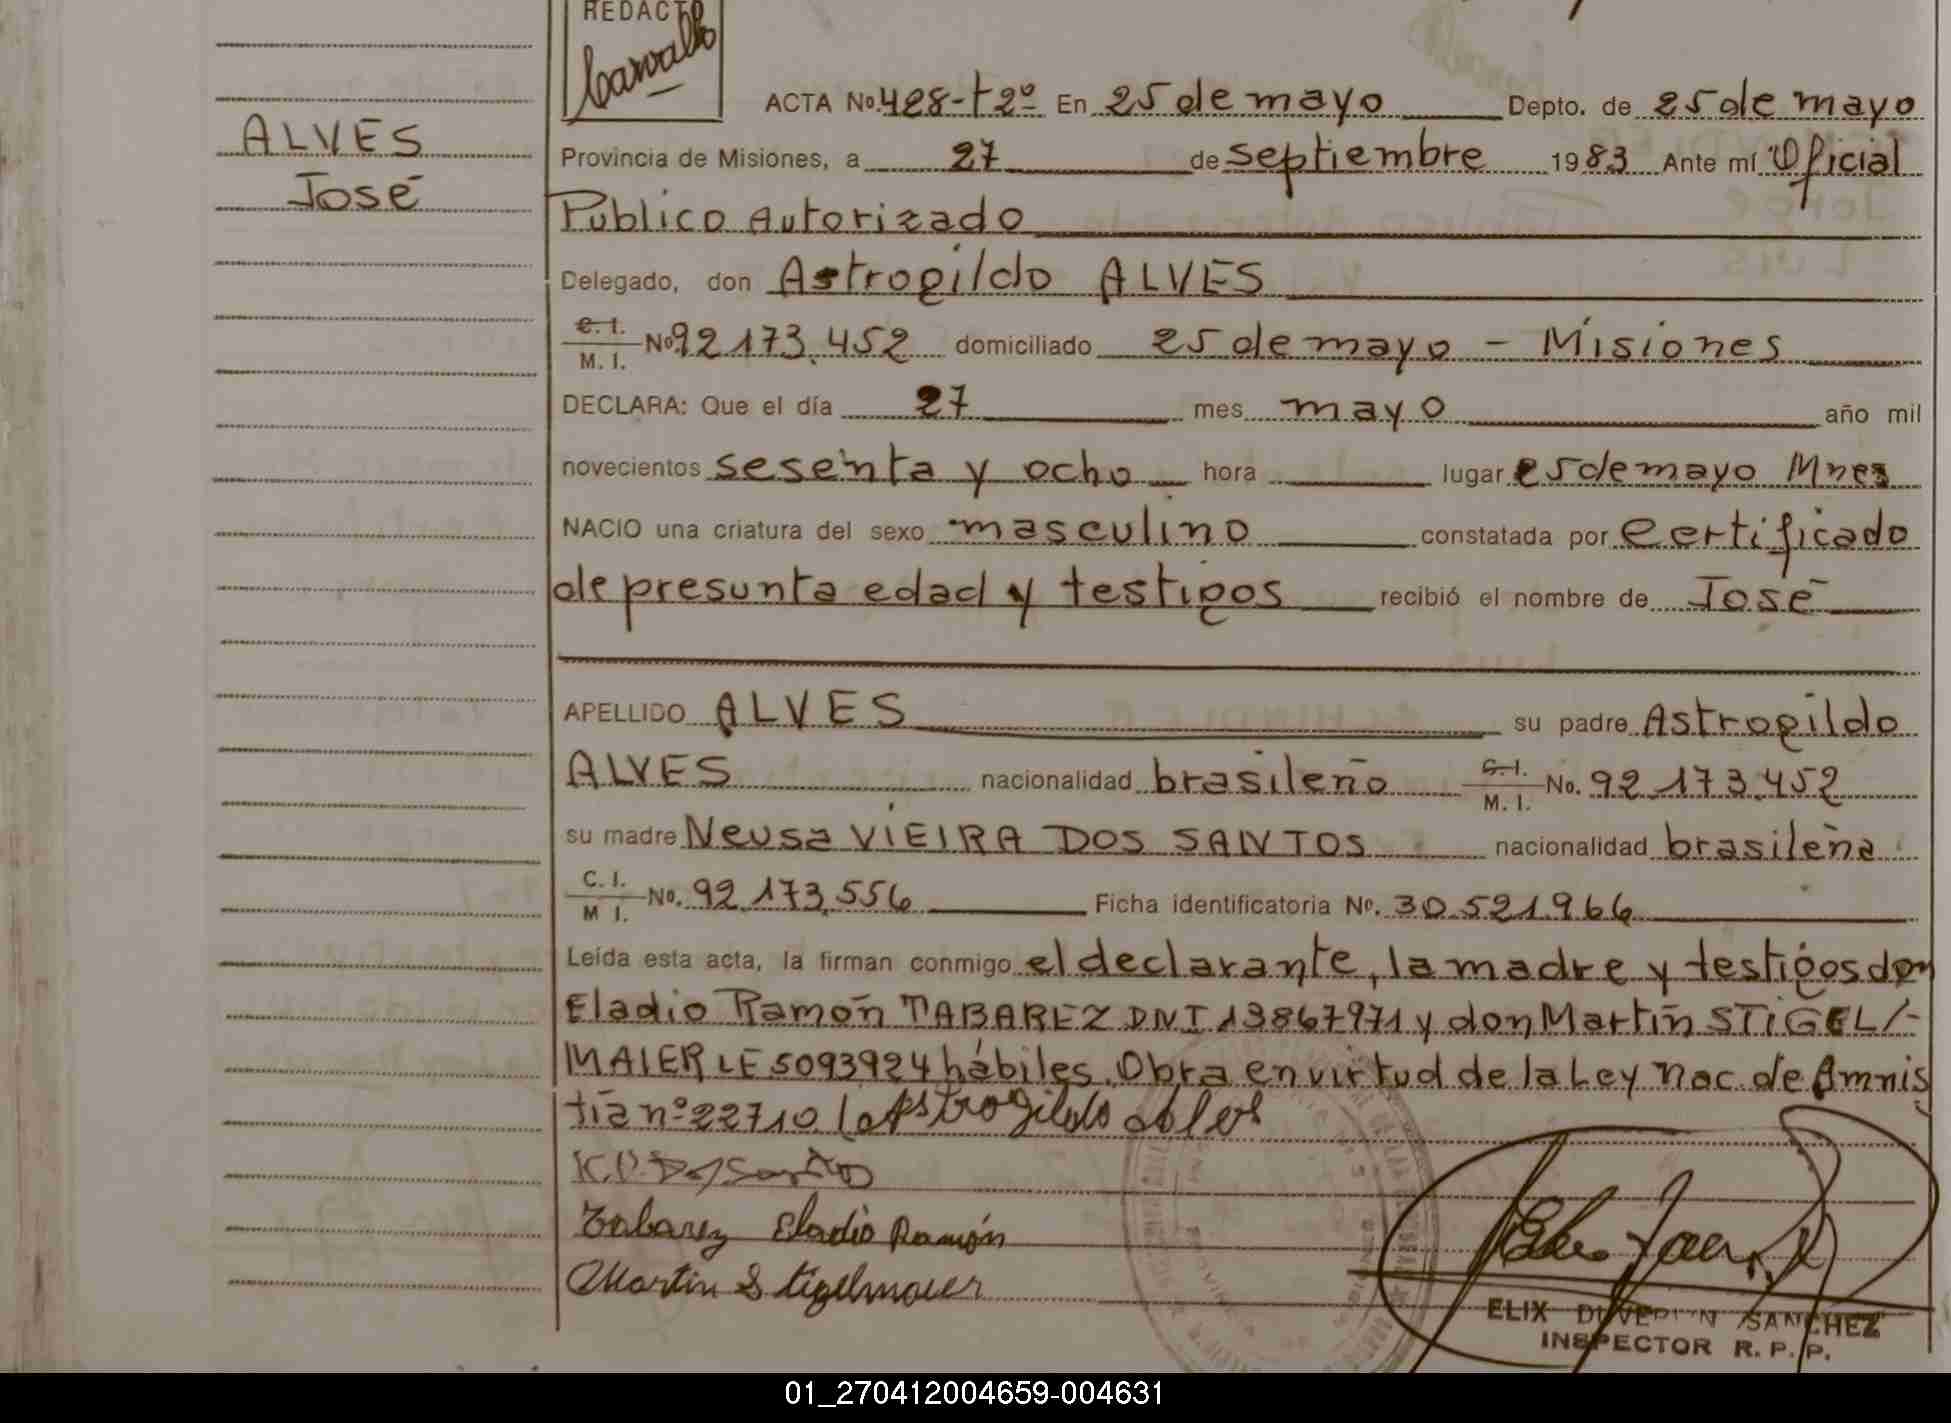 REDACTO
Carvallo
ALVES
José
ACTA No. 428-t2º En 25 de mayo Depto. de 25 de mayo
Provincia de Misiones, a 27 de septiembre 1983 Ante mí Oficial
Público Autorizado
Delegado, don Astrogildo ALVES
C. I. / M. I. No 92.173.452 domiciliado 25 de mayo - Misiones
DECLARA: Que el día 27 mes mayo año mil
novecientos sesenta y ocho hora lugar 25 de mayo Mnes
NACIO una criatura del sexo masculino constatada por certificado
de presunta edad y testigos recibió el nombre de José
APELLIDO ALVES su padre Astrogildo
ALVES nacionalidad brasileño C. I. / M. I. No. 92.173.452
su madre Neusa VIEIRA DOS SANTOS nacionalidad brasileña
C. I. / M I. No. 92.173.556 Ficha identificatoria Nº. 30.521.966
Leída esta acta, la firman conmigo el declarante, la madre y testigos don
Eladio Ramón TABAREZ DNI 13867971 y don Martín STIGEL/-
MAIER LE 5093924 hábiles. Obra en virtud de la Ley Nac. de Amnis
tía nº 22710. Astrogildo Alves
Dos Santos
Tabarez Eladio Ramón
Martin Stigelmaier
SANCHEZ
INSPECTOR R. P. P.
01_270412004659-004631